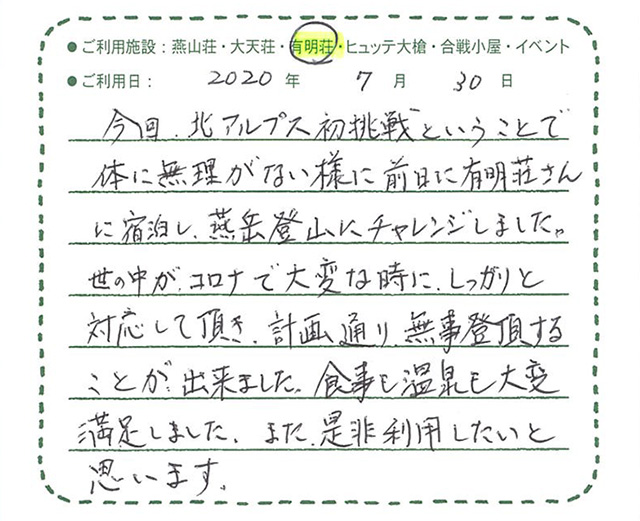 ●ご利用施設：燕山荘・大天荘・有明荘・ヒュッテ大槍・合戦小屋・イベント
●ご利用日： 2020 年 7 月 30 日
今回、北アルプス初挑戦ということで
体に無理がない様に前日に有明荘さん
に宿泊し、燕岳登山にチャレンジしました。
世の中が、コロナで大変な時に、しっかりと
対応して頂き、計画通り、無事登頂する
ことが、出来ました。食事も温泉も大変
満足しました。また、是非利用したいと
思います。